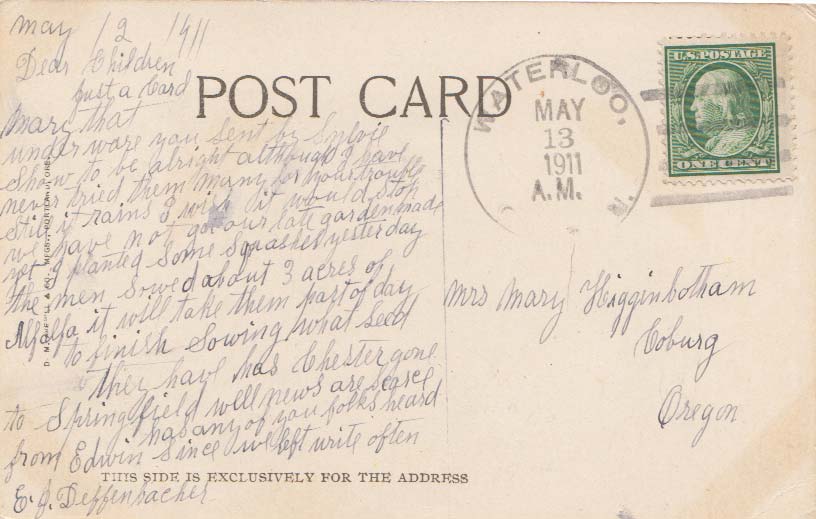 May 12 1911
Dear Children
just a Card
POST CARD
Mary that
under ware you sent by Sylvie
show to be alright although I have
never tried them many for your trouble
still it rains I wish it would stop
we have not got our late garden made
yet I planted some squashes yesterday
the men sowed about 3 acres of
Alfalfa it will take them part of day
to finish sowing what seed
they have has Chester gone
to Springfield well news are scarce
has any of you folks heard
from Edwin since we left write often
E. J. Deffenbacher
THIS SIDE IS EXCLUSIVELY FOR THE ADDRESS
WATERLOO,
MAY
13
1911
A.M.
U.S. POSTAGE
ONE CENT
Mrs Mary Higginbotham
Coburg
Oregon